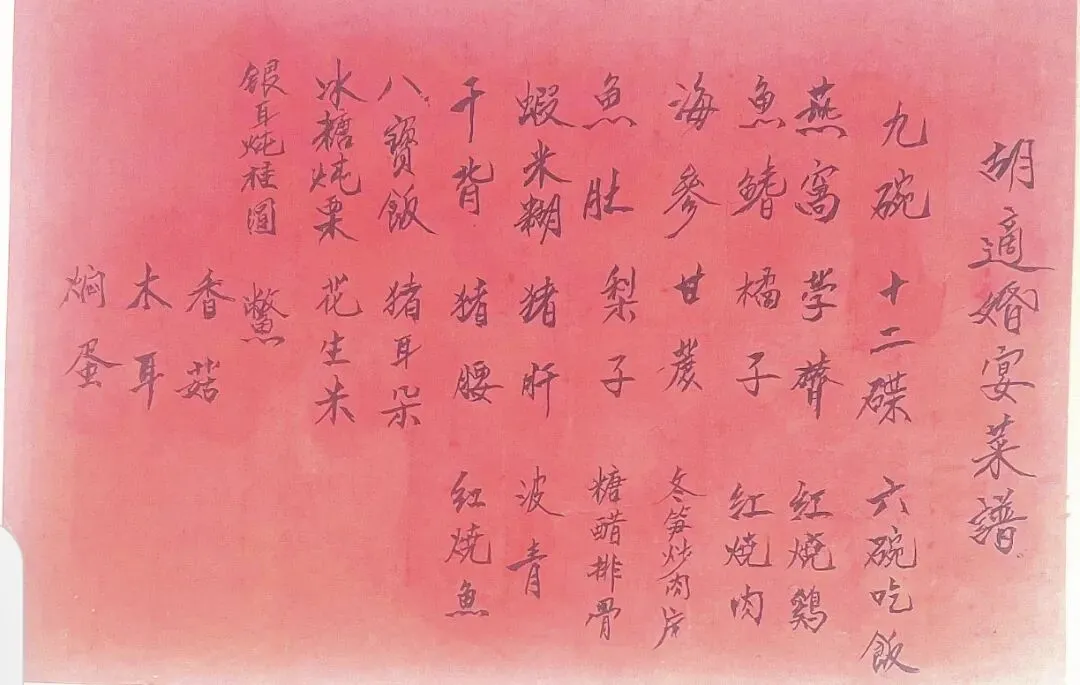 胡適婚宴菜譜
九碗 十二碟 六碗吃飯
燕窩 荸薺 紅燒鷄
魚鰭 橘子 紅燒肉
海參 甘蔗 冬筍炒肉片
魚肚 梨子 糖醋排骨
蝦米糊 猪肝 波青
干背 猪腰 紅燒魚
八寶飯 猪耳朵
冰糖炖栗 花生米
銀耳炖桂圓 鱉
香菇
木耳
焖蛋